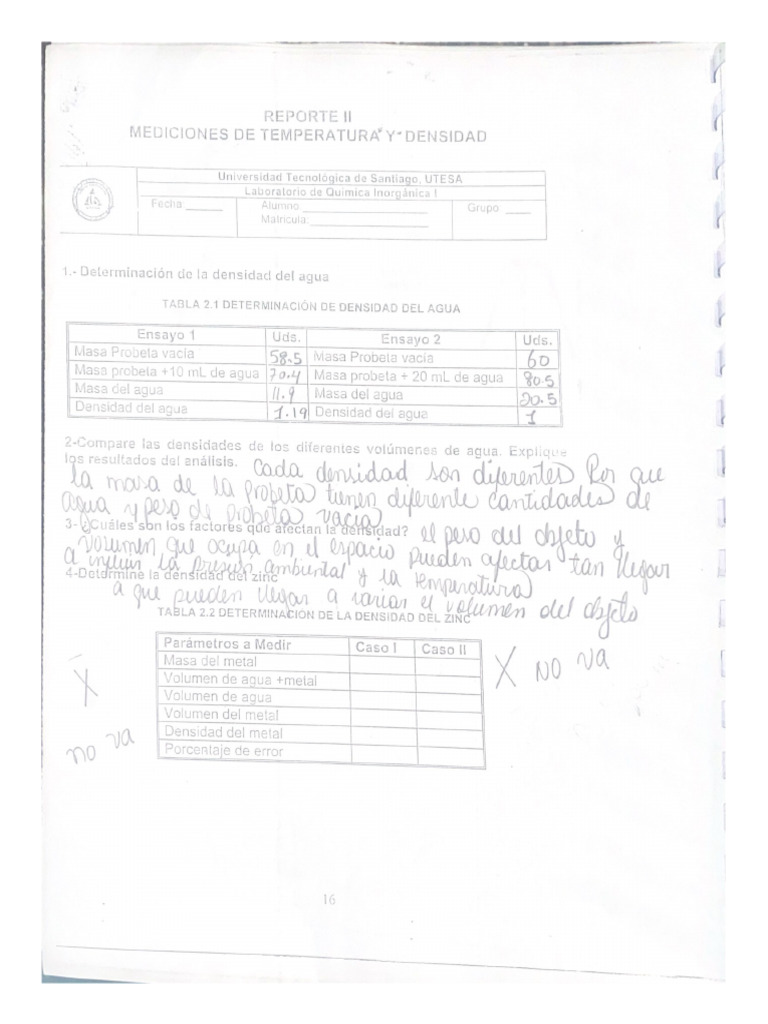 REPORTE II
MEDICIONES DE TEMPERATURA Y DENSIDAD
Universidad Tecnológica de Santiago, UTESA
Laboratorio de Química Inorgánica I
Fecha:______ Alumno ______ Grupo: ____
Matricula:______
1.- Determinación de la densidad del agua
TABLA 2.1 DETERMINACIÓN DE DENSIDAD DEL AGUA
Ensayo 1 Uds. Ensayo 2 Uds.
Masa Probeta vacía 58.5 Masa Probeta vacía 60
Masa probeta +10 mL de agua 70.4 Masa probeta + 20 mL de agua 80.5
Masa del agua 11.9 Masa del agua 20.5
Densidad del agua 1.19 Densidad del agua 1
2-Compare las densidades de los diferentes volúmenes de agua. Explique
los resultados del análisis. Cada densidad son diferentes Por que
la masa de la probeta tienen diferente cantidades de
agua y peso de probeta vacia
3- ¿Cuáles son los factores que afectan la densidad? el peso del objeto y
volumen que ocupa en el espacio pueden afectar tan llegar
a influir la Presión ambiental y la temperatura
4-Determine la densidad del zinc
a que pueden llegar a variar el volumen del objeto
TABLA 2.2 DETERMINACIÓN DE LA DENSIDAD DEL ZINC
Parámetros a Medir Caso I Caso II
Masa del metal
Volumen de agua +metal
X NO VA
Volumen de agua
X
Volumen del metal
Densidad del metal
no va
Porcentaje de error
16